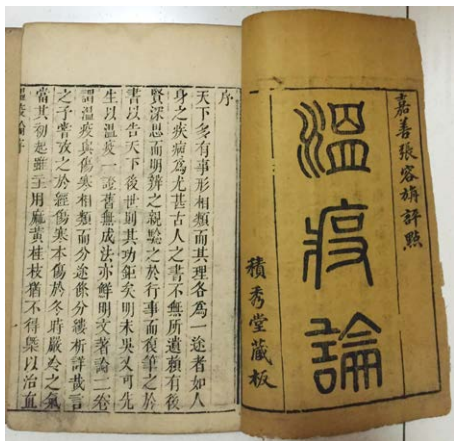 嘉善張容旃評點
溫疫論
積秀堂藏板
序
天下多有事形相類而其理各為一途者如人
身之疾病為尤甚古人之書不無所遺賴有後
賢深思而明辨之親驗之於行事而復筆之於
書以告天下後世則其功鉅矣明末吳又可先
生以溫疫一證舊無成法亦鮮明文著論二卷
謂溫疫與傷寒相類而分途條分縷析詳哉言
之予嘗攷之於經傷寒本傷於冬時嚴冷之氣
當其初起雖主用麻黃桂枝猶不得槩以治血
溫疫論序